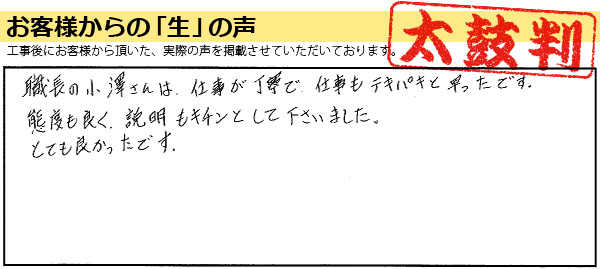 お客様からの「生」の声
太鼓判
工事後にお客様から頂いた、実際の声を掲載させていただいております。
職長の小澤さんは、仕事が丁寧で、仕事もテキパキと早ったです。
態度も良く、説明もキチンとして下さいました。
とても良かったです。